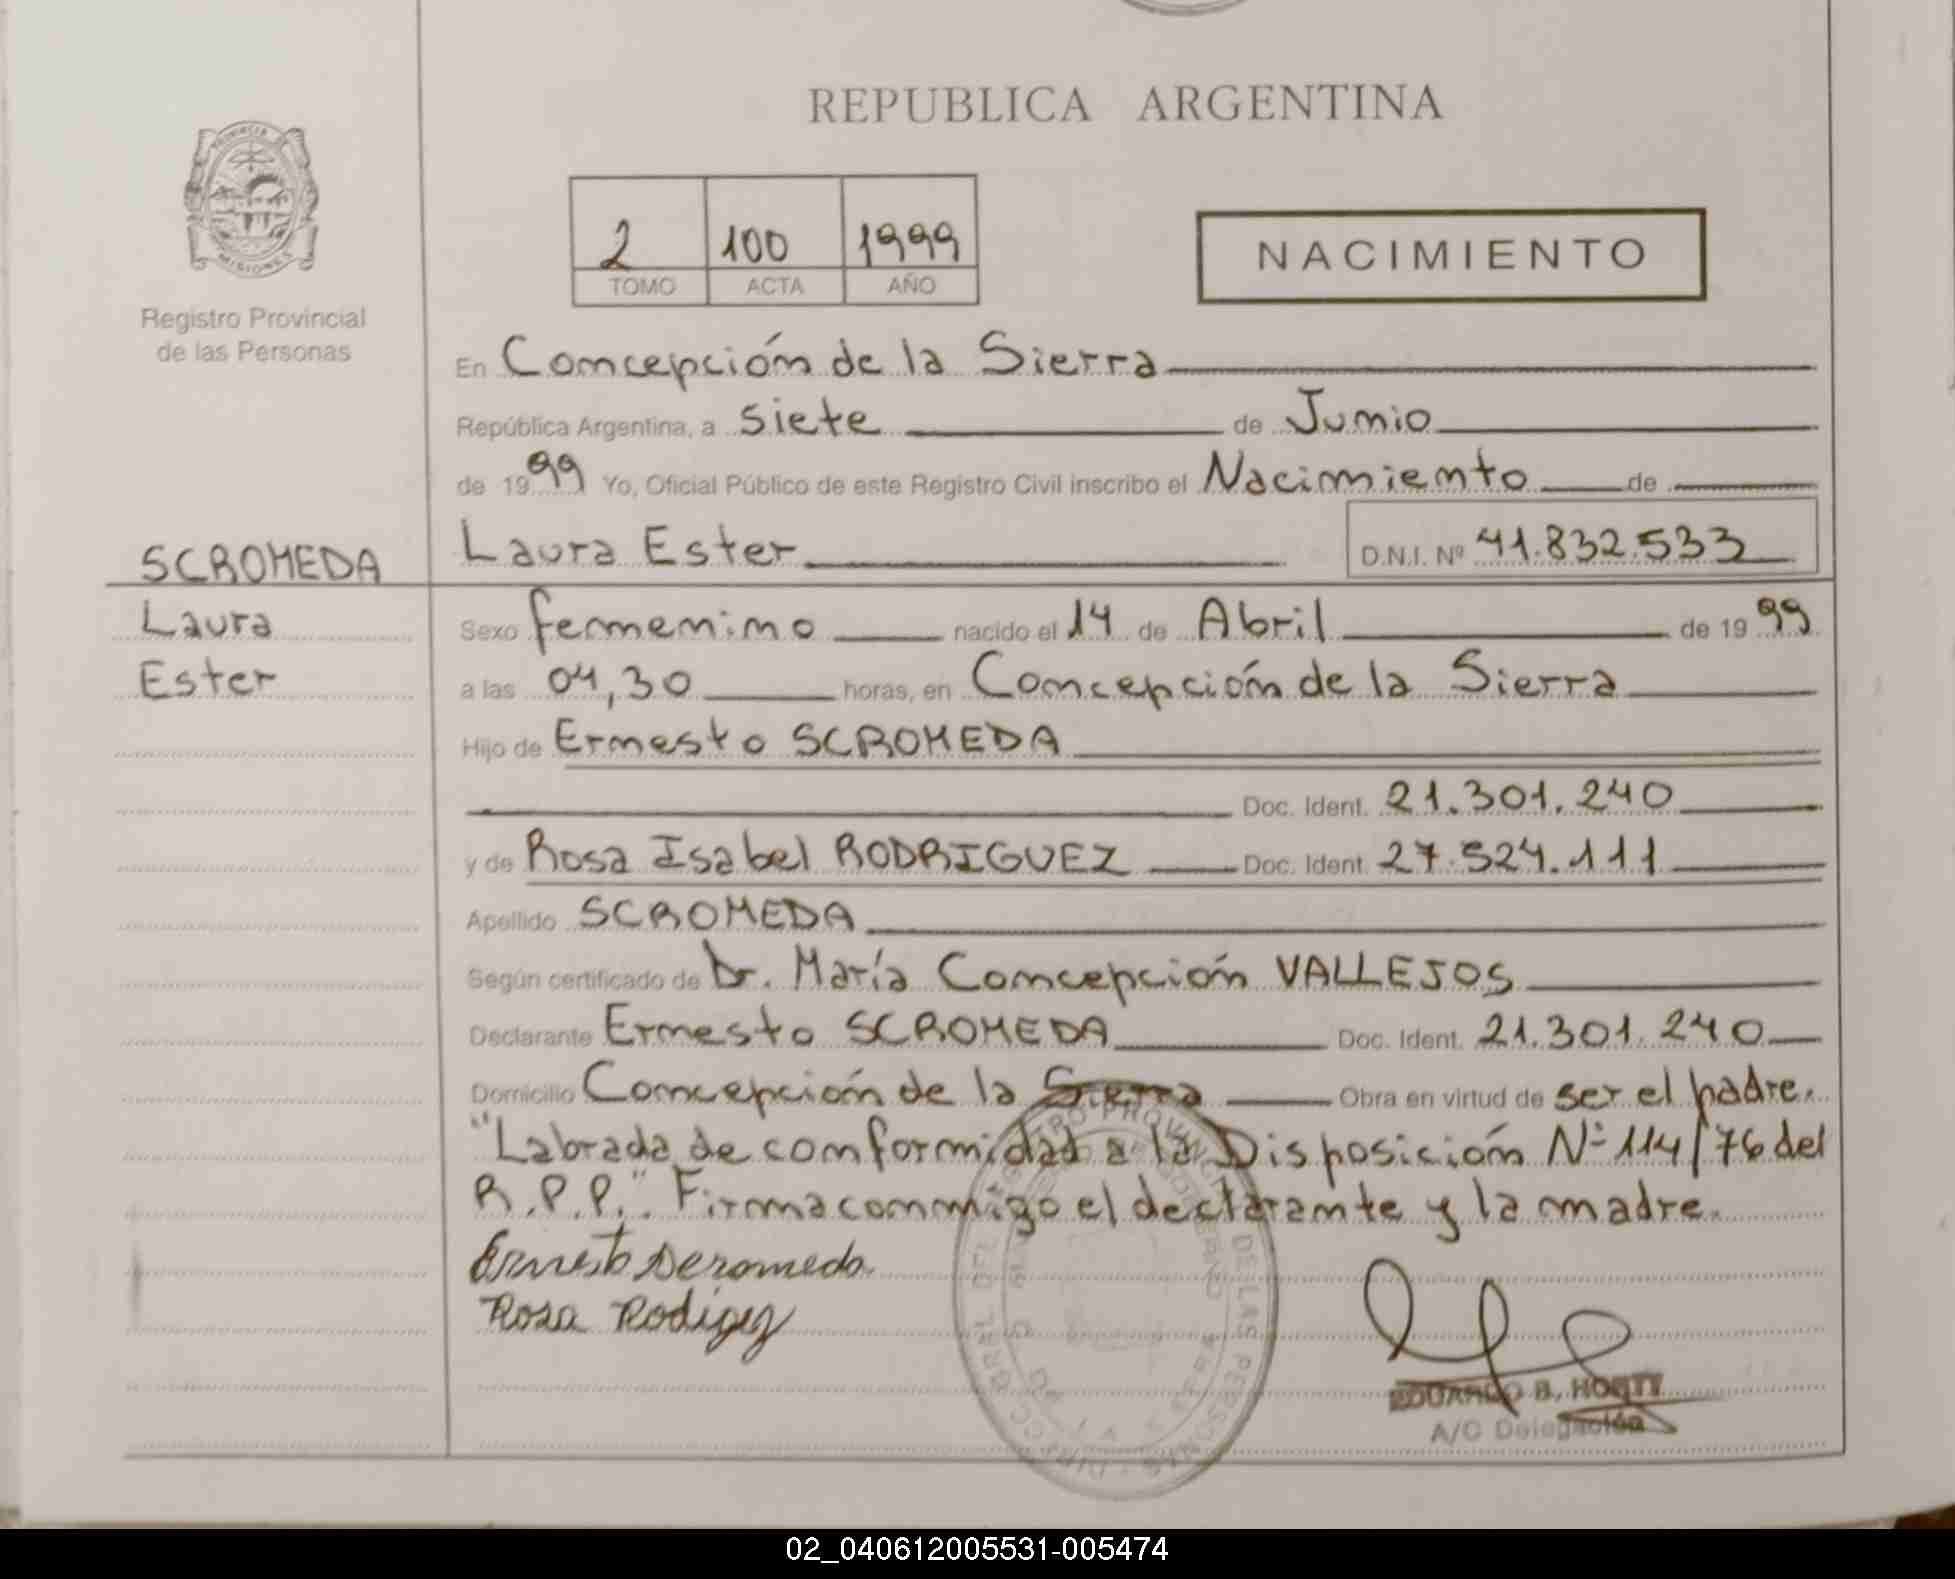 REPUBLICA ARGENTINA
PROVINCIA DE
MISIONES
Registro Provincial
de las Personas
2 100 1999
TOMO ACTA AÑO
NACIMIENTO
En Concepción de la Sierra
República Argentina, a siete de Junio
de 1999 Yo, Oficial Público de este Registro Civil inscribo el Nacimiento de
SCROMEDA
Laura
Ester
Laura Ester D.N.I. Nº 41.832.533
Sexo femenino nacido el 14 de Abril de 1999
a las 04,30 horas, en Concepción de la Sierra
Hijo de Ernesto SCROMEDA
Doc. Ident. 21.301.240
y de Rosa Isabel RODRIGUEZ Doc. Ident. 27.524.111
Apellido SCROMEDA
Según certificado de Dr. María Concepción VALLEJOS
Declarante Ernesto SCROMEDA Doc. Ident. 21.301.240
Domicilio Concepción de la Sierra Obra en virtud de ser el padre.
"Labrada de conformidad a la Disposición Nº 114/76 del
R.P.P.". Firma conmigo el declarante y la madre.
Ernesto Scromeda
Rosa Rodigez
EDUARDO B. HORTY
A/C Delegación
DIRECC. GRAL. DEL REGISTRO PROVINCIAL DE LAS PERSONAS
02_040612005531-005474